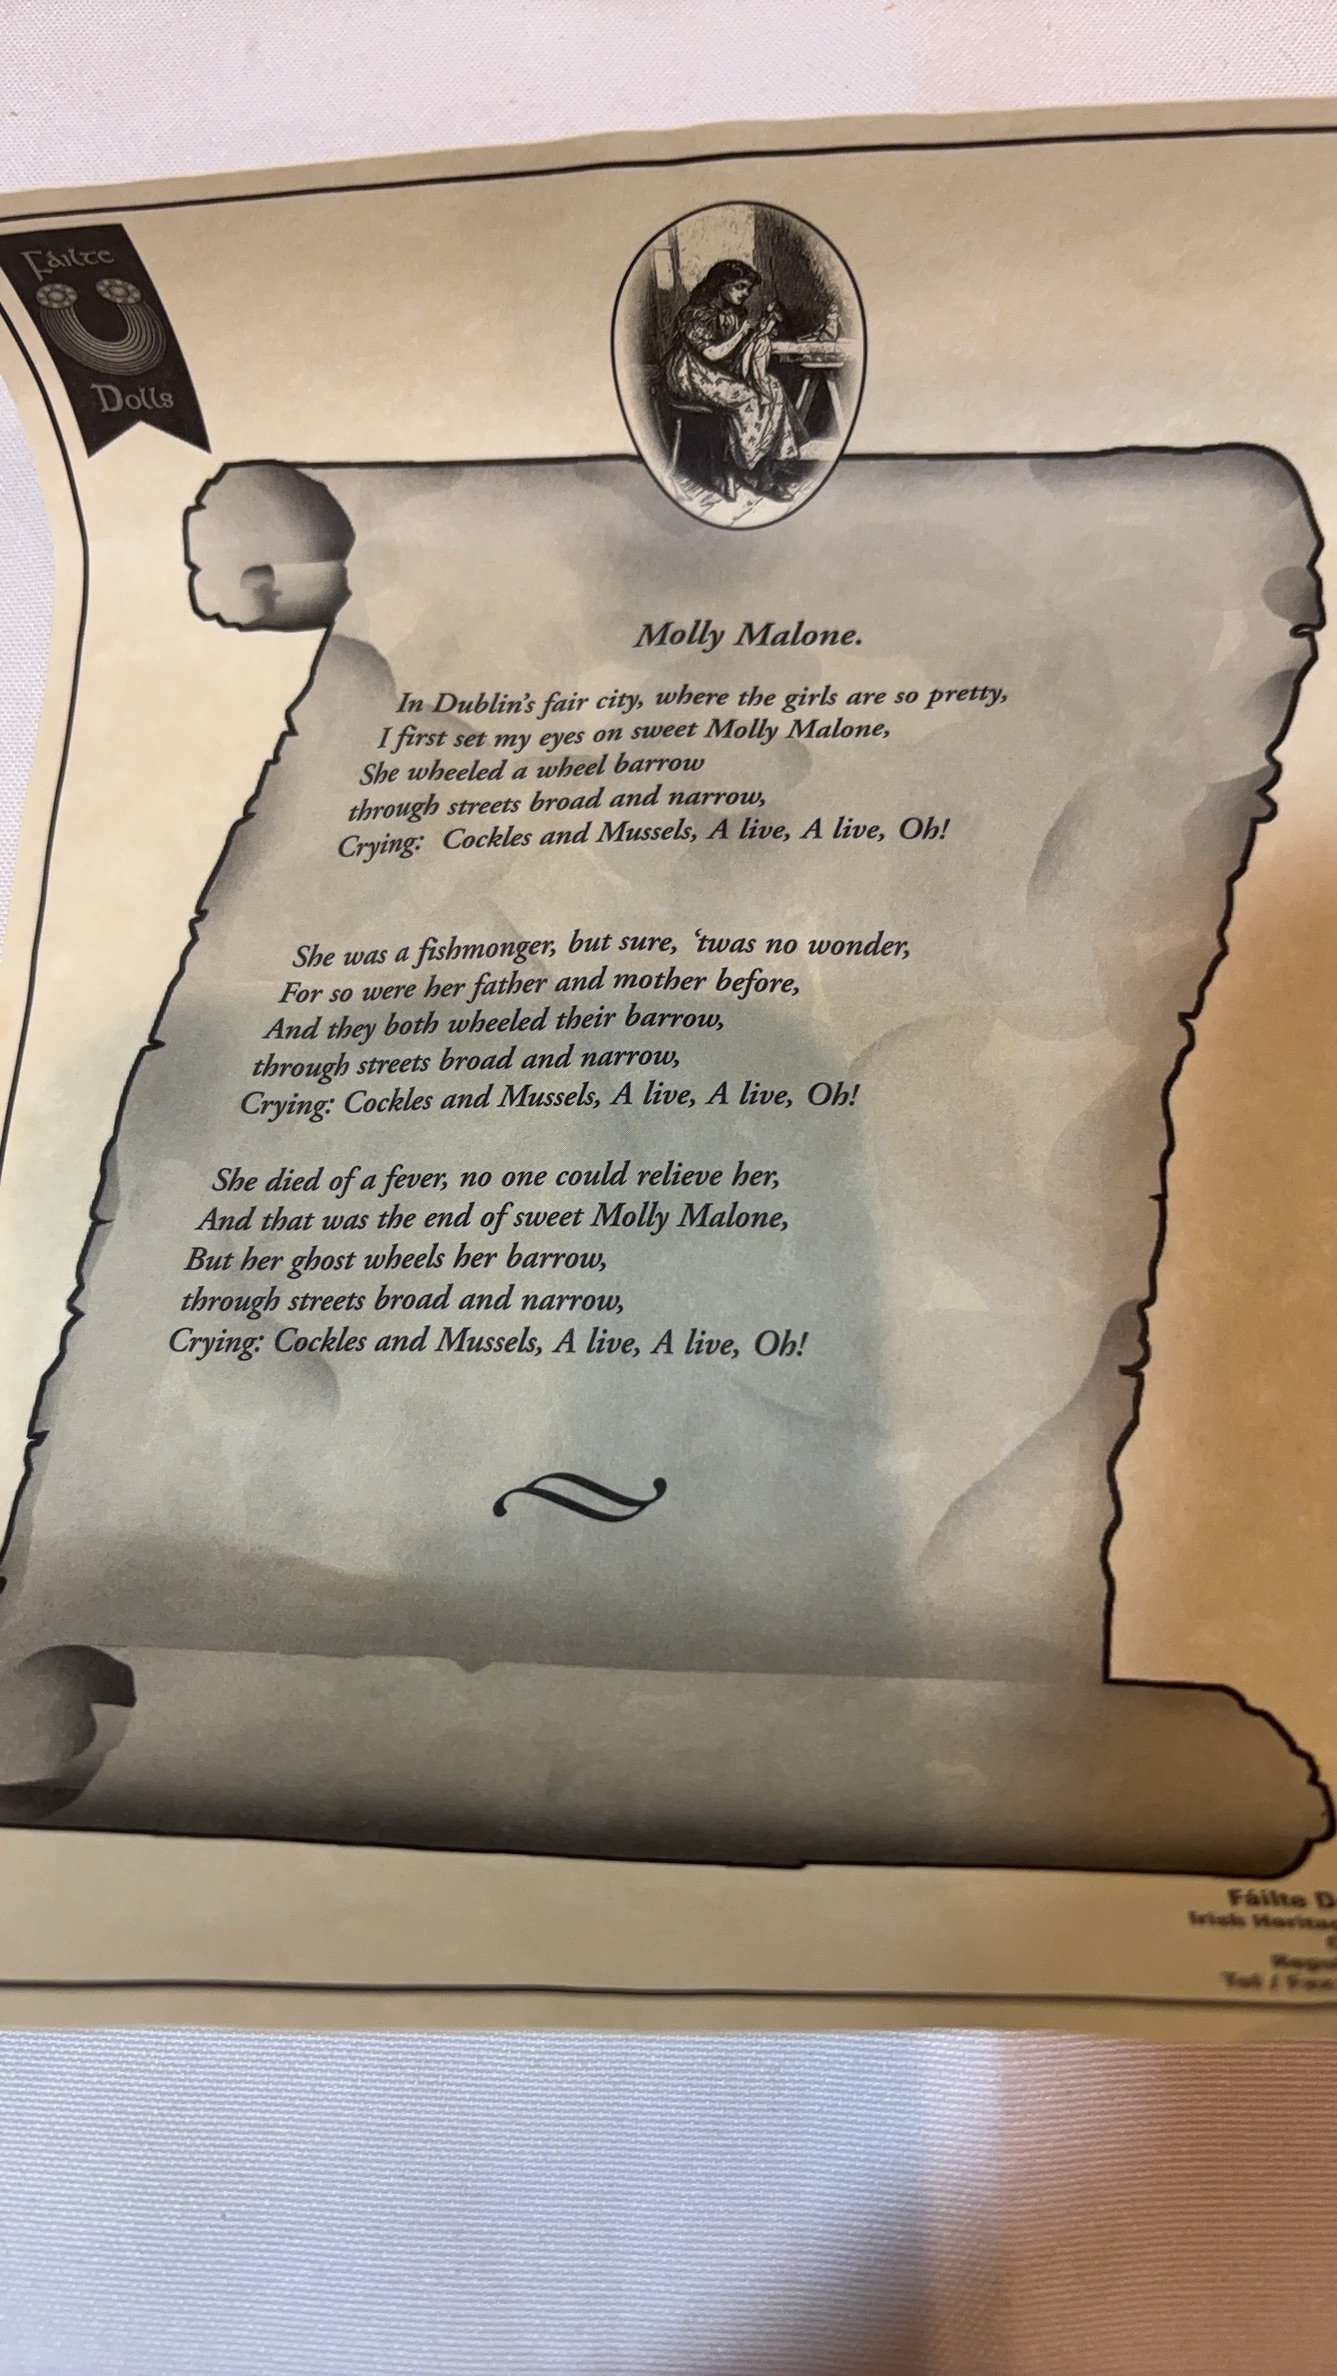 Fáilte
Dolls
Molly Malone.
In Dublin's fair city, where the girls are so pretty,
I first set my eyes on sweet Molly Malone,
She wheeled a wheel barrow
through streets broad and narrow,
Crying: Cockles and Mussels, A live, A live, Oh!
She was a fishmonger, but sure, ‘twas no wonder,
For so were her father and mother before,
And they both wheeled their barrow,
through streets broad and narrow,
Crying: Cockles and Mussels, A live, A live, Oh!
She died of a fever, no one could relieve her,
And that was the end of sweet Molly Malone,
But her ghost wheels her barrow,
through streets broad and narrow,
Crying: Cockles and Mussels, A live, A live, Oh!
Fáilte
Irish
Tel / Fax